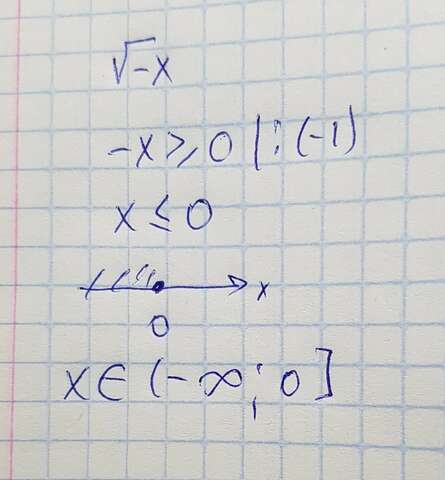 √-x
-x ⩾ 0 | : (-1)
x ≤ 0
x
0
x ∈ (-∞; 0]